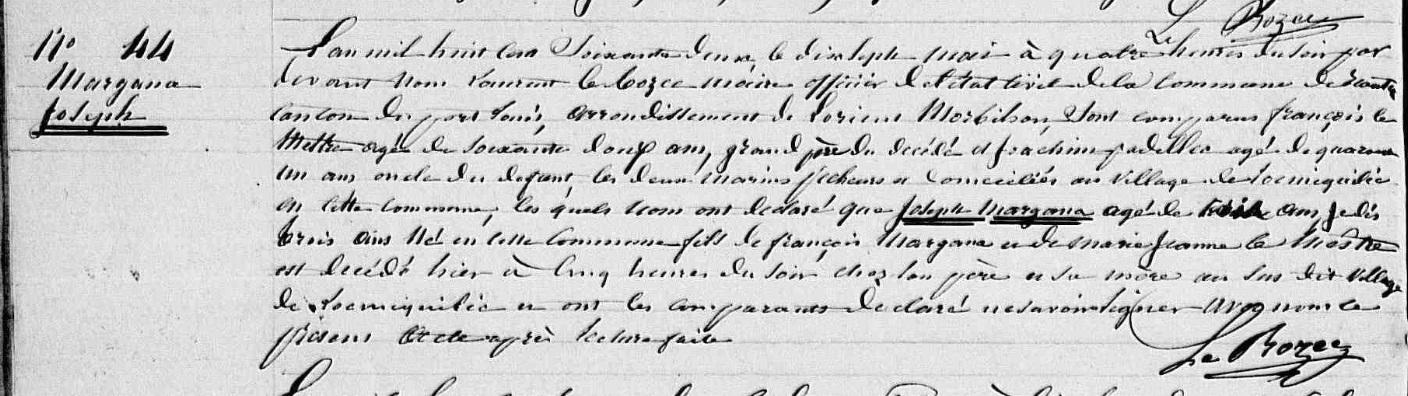 Le Rozec
N° 44
Margana
Joseph
L'an mil huit cent Soixante deux, le dixsepts mai à quatre heures du soir par
devant nous Laurent le Rozec maire officier de l'état civil de la commune de
canton du port Louis, arrondissement de Lorient Morbihan, Sont comparus françois le
Mettre agé de Soixante douze ans, grand père du décédé et Joachim padellec agé de quarante
un ans oncle du defunt, les deux marins pecheurs et Domiciliés au village de Locmiquélic
en cette commune, les quels nous ont declaré que Joseph Margana agé de ans, je dis
trois ans Né en cette Commune fils de françois Margana et de marie Jeanne le
est decédé hier à Cinq heures du soir chez son père et sa mère au sus dit village
de Locmiquélic et ont les comparants declaré ne savoir signer avec nous le
présent acte après lecture faite
Le Rozec